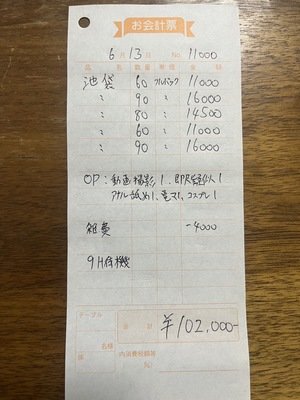 お会計票
6月13日 No. 11000
品名 数量 単価 金額
池袋 60 フルバック 11000
〃 90 〃 16000
〃 80 〃 14500
〃 60 〃 11000
〃 90 〃 16000
OP:動画撮影1、即尺1
アナル舐め1、電マ1、コスプレ1
雑費 -4000
9H待機
テーブル 合計 ¥102,000-
名様
係 内消費税額等
%